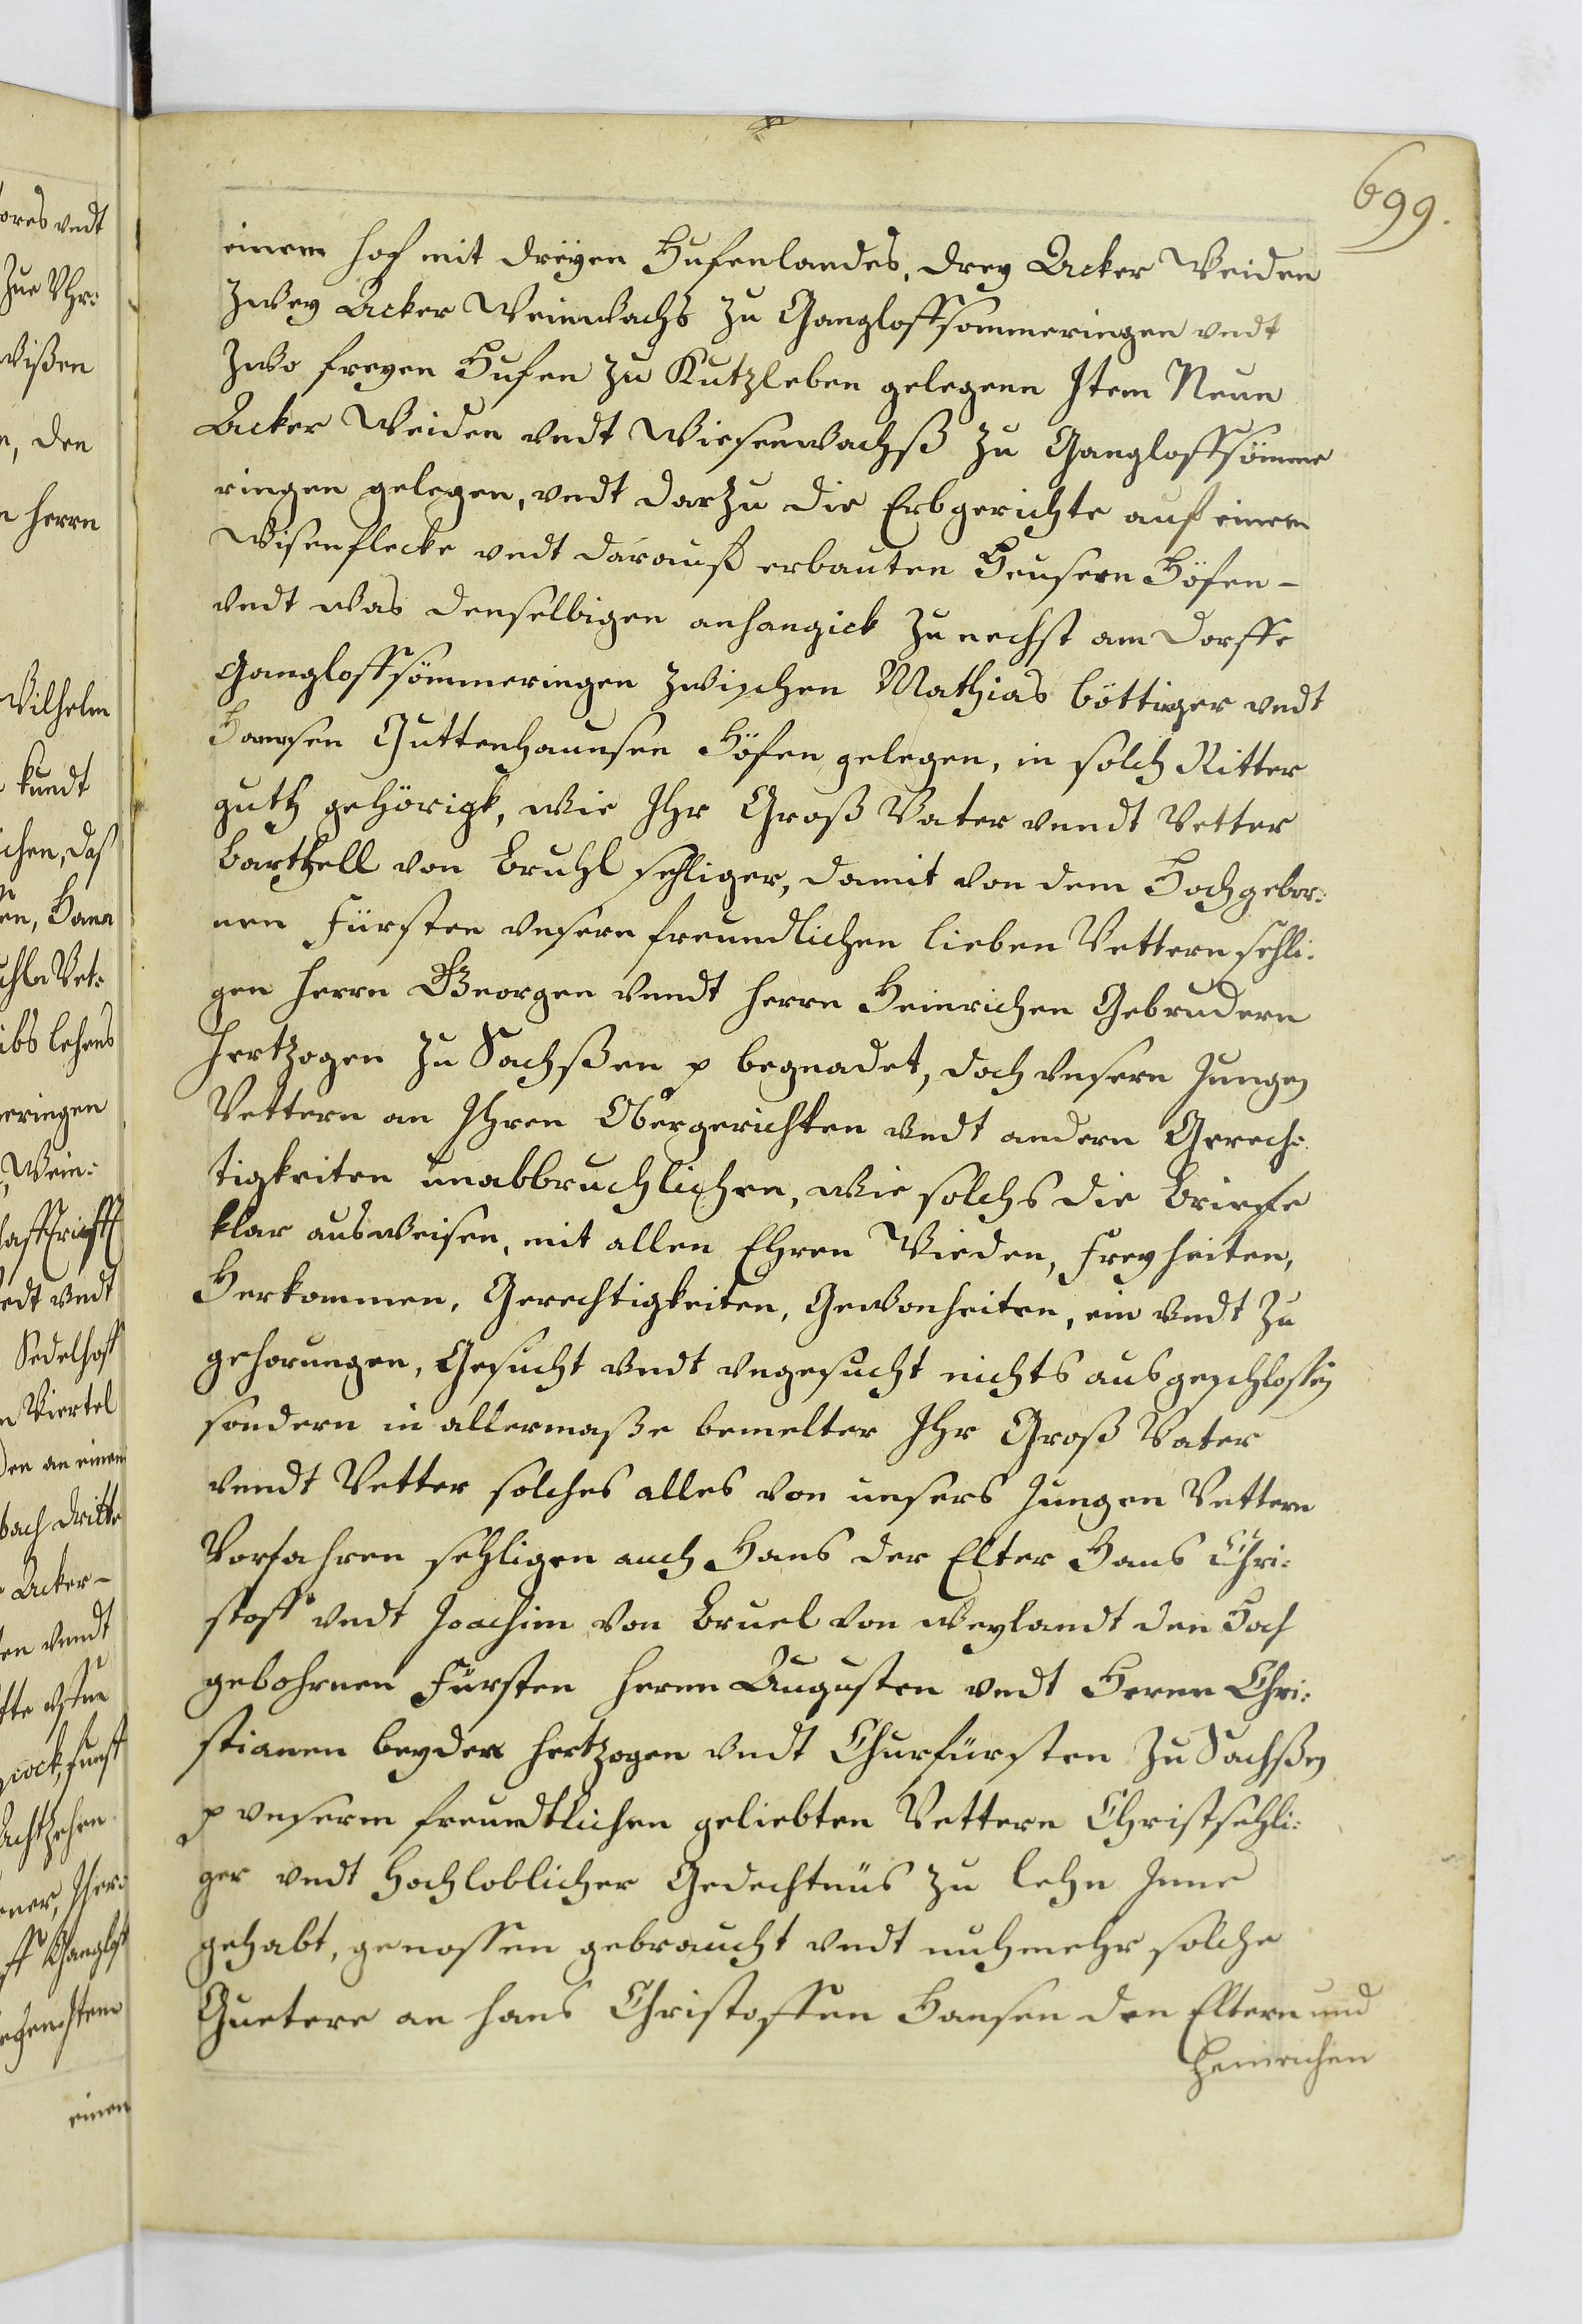 699.
einem hof mit dreyen Hufenlandes, drey Acker Weiden
Zwey Acker Weinwachs zu Gangloffsommeringen vndt
Zwo freyen Hufen zu Kutzleben gelegenn Item Neun
Acker Weiden vndt Wiesenwachß zu Gangloffsömme
ringen gelegen, vndt darzu die Erbgerichte auf einem
Wisenflecke vndt darauf erbauten Heusern Höfen –
vndt was denselbigen anhangick zu nechst am Dorffe
Gangloffsömmeringen zwischen Mathias böttiger vndt
Hannsen Guttenhaunsen Höfen gelegen, in solch Ritter
guth gehörigk, wie Ihr Groß Vater vnndt Vetter
Barthell von Bruhl sehliger, damit von dem Hochgebor:
nen Fürsten vnsern freundlichen lieben Vettern sehli:
gen herrn Georgen vnndt herrn Heinrichen Gebrudern
Hertzogen zu Sachßen p begnadet, doch vnsern Jungen
Vettern an Ihren Obergerichten vndt andern Gerech:
tigkeiten unabbruchlichen, wie solchs die Briefe
klar ausweisen, mit allen Ehren Wieden, Freyheiten,
Herkommen, Gerechtigkeiten, Gewonheiten, ein vndt Zu
gehorungen, Gesucht vndt vngesucht nichts ausgeschlossen
sondern in allermaße bemelter Ihr Groß Vater
vnndt Vetter solches alles von unsers Jungen Vettern
Vorfahren sehligen auch Hans der Elter Hans Chri:
stoff vndt Joachim von Bruel von weylandt den Hoch
gebohrnen Fürsten herrn Augusten vndt Herrn Chri:
stianen beyder Hertzogen vndt Churfürsten zu Sachßen
p vnserm freundtlichen geliebten Vettern Christsehli:
ger vndt Hochloblicher Gedechtnüs zu lehn Inne
gehabt, genossen gebraucht vndt nuhmehr solche
Guetere an hans Christoffen Hansen den Eltern und
Heinrichen